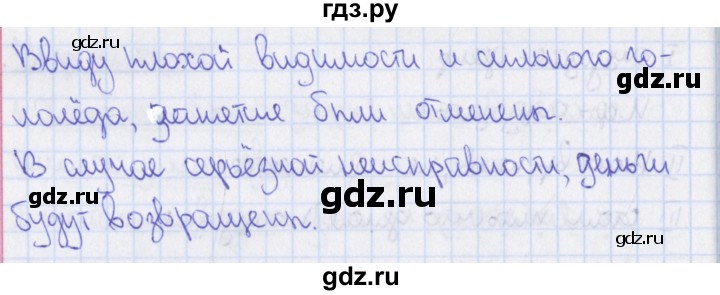 гдз.ру
Ввиду плохой видимости и сильного го-
лолёда, занятие были отменены.
В случае серьёзной неисправности, деньги
будут возвращены.
gdz.ru
gdz.ru
gdz.ru
gdz.ru
gdz.ru